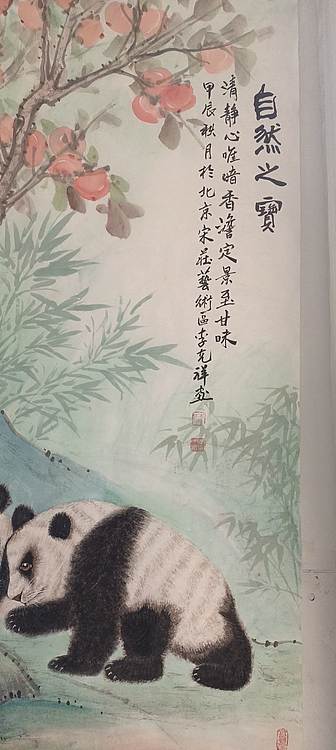 自然之寶
清靜心唯暗香澹定景至甘味
甲辰秋月於北京宋莊藝術區李克祥画